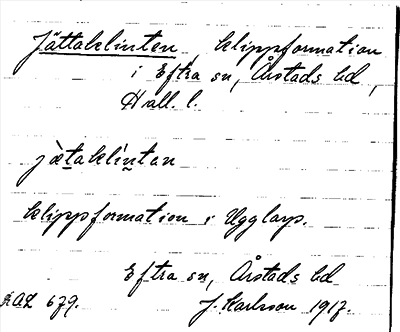 Jättaklinten, klippformation
i Eftra sn, Årstads hd,
Hall. l.
jä̀taklíntan
klippformation i Ugglarp.
Eftra sn, Årstads hd
679. J. Karlsson 1917.